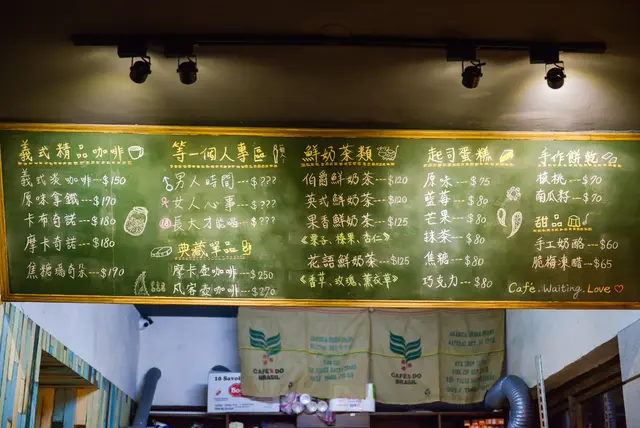 義式精品咖啡
義式淡咖啡---$150
原味拿鐵---$170
卡布奇諾---$180
摩卡奇諾---$180
焦糖瑪奇朵---$190
等一個人專區
男人時間---$???
女人心事---$???
長大才能喝---$???
典藏單品
摩卡壺咖啡---$250
風客壺咖啡---$270
鮮奶茶類
伯爵鮮奶茶---$120
英式鮮奶茶---$120
果香鮮奶茶---$125
《栗子、榛果、杏仁》
花語鮮奶茶---$120
《香草、玫瑰、薰衣草》
起司蛋糕
原味---$75
藍莓---$80
芒果---$80
抹茶---$80
焦糖---$80
巧克力---$80
手作餅乾
核桃---$70
南瓜籽---$70
甜品
手工奶酪---$60
脆梅凍醋---$65
Café. Waiting. Love
CAFÉS DO BRASIL
CAFÉS DO BRASIL